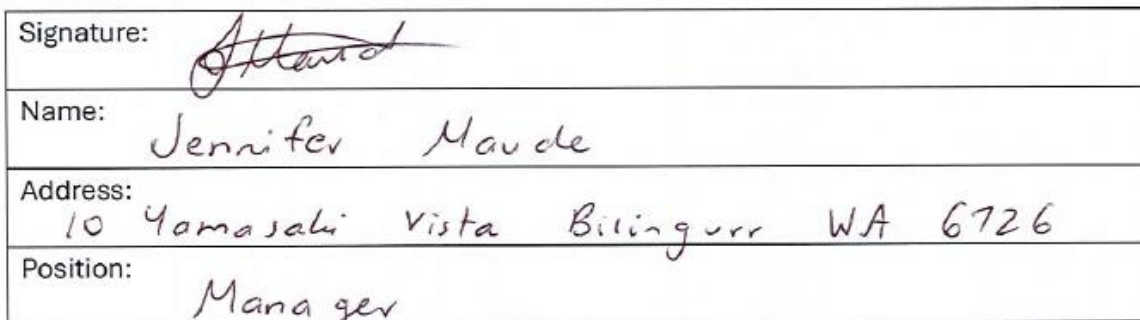 Signature:
Name:
Jennifer Maude
Address:
10 Yamasaki Vista Bilingurr WA 6726
Position:
Manager